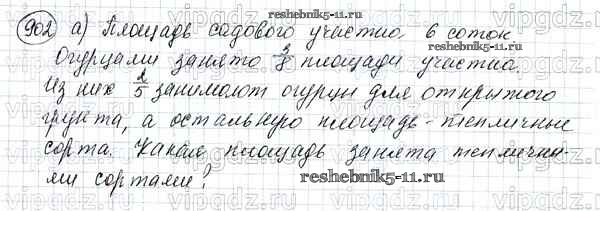 902 а) Площадь садового участка 6 соток
Огурцами занято 3/8 площади участка.
Из них 2/5 занимают огурцы для открытого
грунта, а остальную площадь - тепличные
сорта. Какая площадь занята тепличны-
ми сортами?
reshebnik5-11.ru
reshebnik5-11.ru
vipgdz